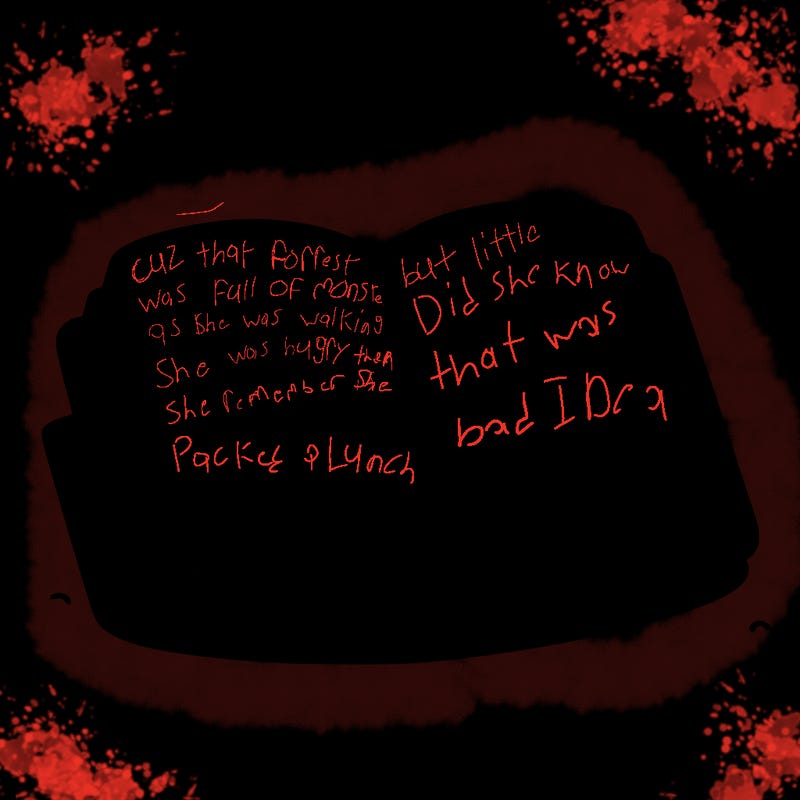 cuz that forrest
was full of monste
as she was walking
She was hugry then
she remember she
Packee a Lunch
but little
Did she know
that was
bad IDea